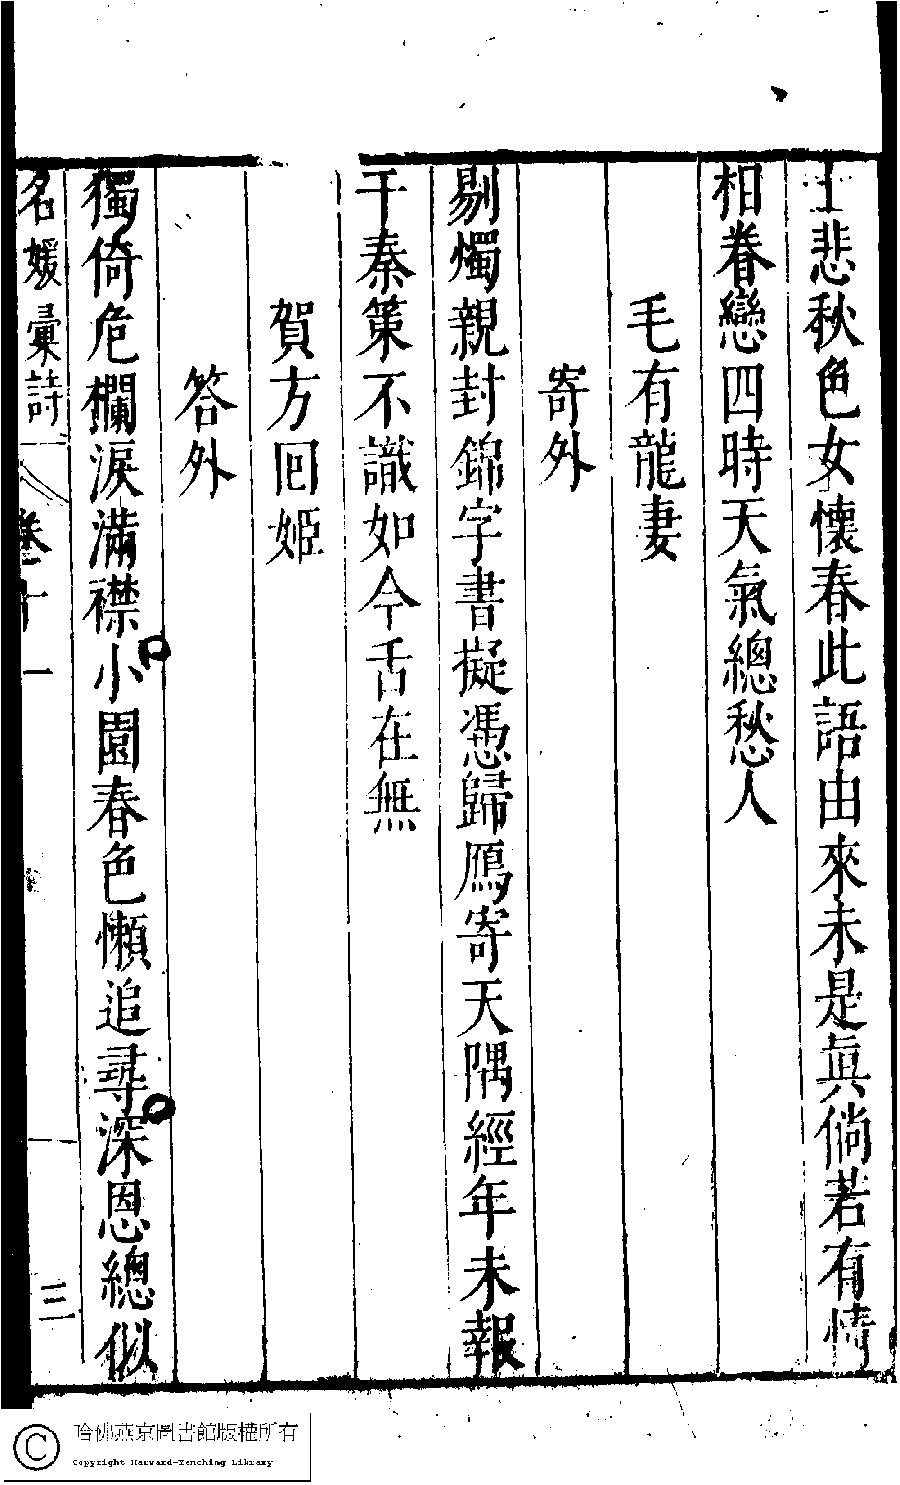 士悲秋色女懷春此語由來未是眞倘若有情
相眷戀四時天氣總愁人
毛有龍妻
寄外
剔燭親封錦字書擬憑歸鴈寄天隅經年未報
干秦策不識如今舌在無
賀方回姬
答外
獨倚危欄淚滿襟小園春色懶追尋深恩總似
名媛彙詩 卷十一 三
哈佛燕京圖書館版權所有
Copyright Harvard-Yenching Library